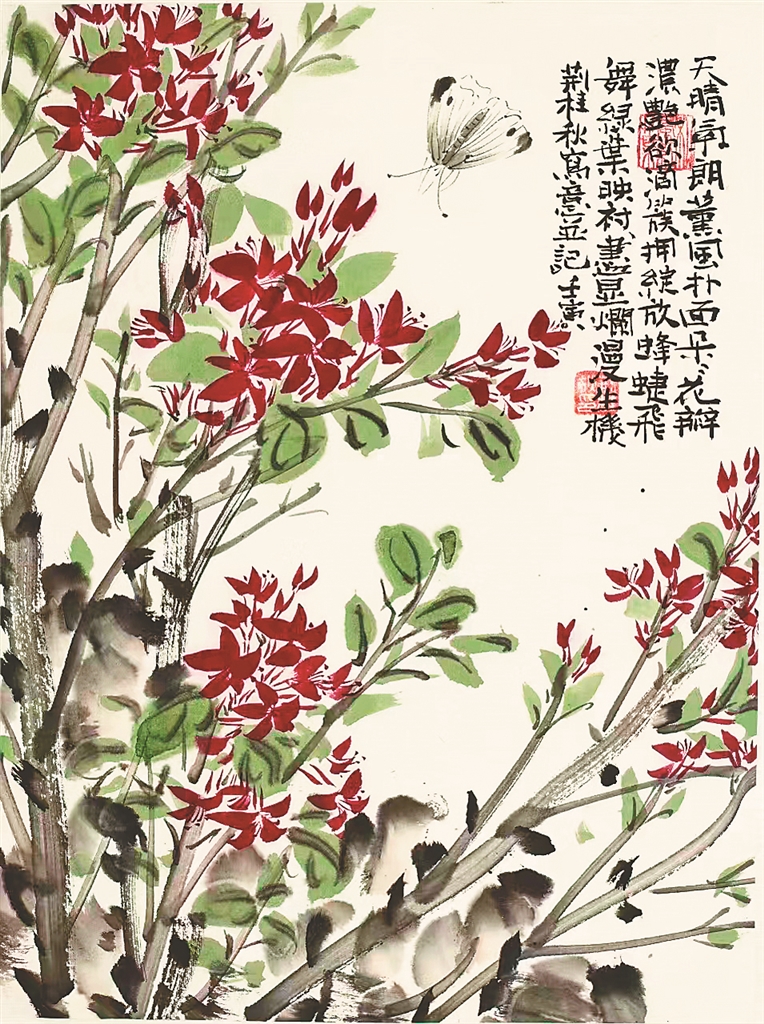 天晴氣朗薰風扑面朵々花瓣
濃艷欲滴簇拥綻放蜂蜨飛
舞綠葉映衬盡显爛漫生機
荆桂秋寫意並記 壬寅